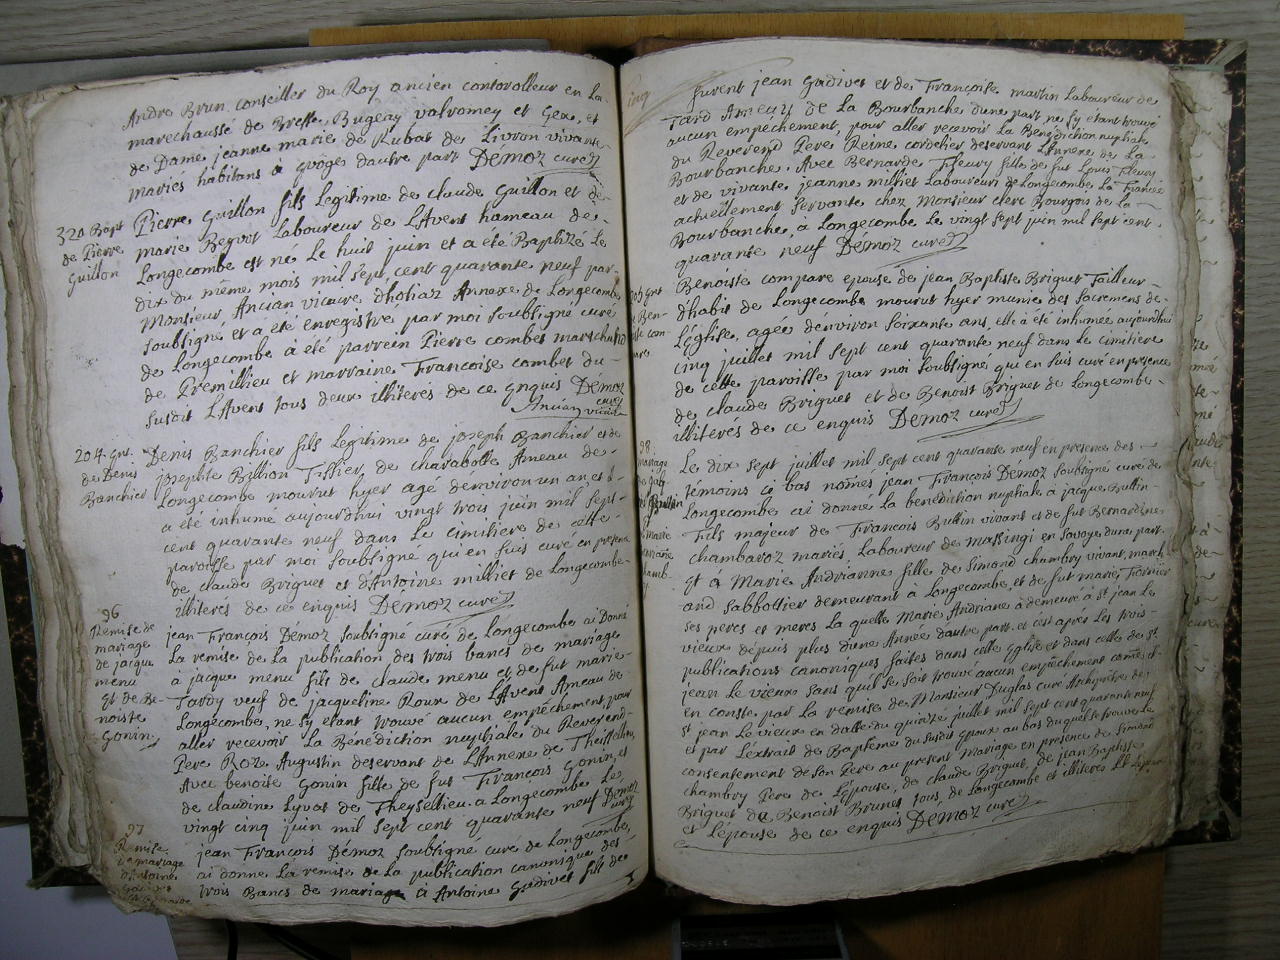 Andre Brun conseiller du Roy ancien controlleur en La
marechaussé de Bresse, Bugeay valromey et Gex, et
de Dame jeanne marie de Rubat de Livron vivants
mariés habitans a dautre part Démoz curé
320 Bapt
de Pierre
Guillon
Pierre Guillon fils Legitime de claude Guillon et de
marie Beguot Laboureur de LAvent hameau de
Longecombe est né Le huit juin et a eté Baptizé Le
dix du même mois mil sept cent quarante neuf par
Monsieur Ancian vicaire dhotiaz Annexe de Longecombe
soubsigné et a eté enregistré par moi soubsigné curé
de Longecombe à été parrein Pierre combet marechal
de Premillieu et marraine Francoise combet du
susdit LAvent tous deux illiterés de ce enquis Démoz
curé
Ancian vicaire
204. Ent.
de Denis
Banchier
Denis Banchier fils Legitime de joseph Banchier et de
josephte Billion Tissier de charabotte Ameau de
Longecombe mourut hyer agé denviron un an et
a été inhumé aujourdhui vingt trois juin mil sept
cent quarante neuf dans Le cimitiere de cette
paroisse par moi soubsigné qui en suis curé en presence
de claude Briguet et dAntoine milliet de Longecombe
illiterés de ce enquis Démoz curé
96
Remise de
mariage
de jacque
menu
Et de Be-
noiste
Gonin
jean François Démoz soubsigné curé de Longecombe ai Donné
La remise de La publication des trois bancs de mariage
a jacque menu fils de claude menu et de fut marie
Tardy veuf de jacqueline Roux de LAvent Ameau de
Longecombe, ne sy etant trouvé aucun empêchement pour
aller recevoir La Bénédiction nuptiale du Reverend
Pere Roze Augustin deservant de LAnnexe de Theisellieu
Avec benoite Gonin fille de fut François Gonin, et
de claudine Lyvat de Theysellieu. a Longecombe Le
vingt cinq juin mil sept cent quarante neuf Démoz
curé
97
Remise
de mariage
dAntoine
Gadivet
jean François Démoz soubsigné curé de Longecombe,
ai donné La remise de La publication canonique des
trois Bancs de mariage à Antoine Gadivet fils de
furent jean Gadivet et de Françoise martin Laboureur de
Tard Ameau de La Bourbanche dune part ne sy etant trouvé
aucun empéchement, pour aller recevoir La Bénédiction nuptiale
du Reverend Pere Reine cordelier deservant LAnnexe de La
Bourbanche. Avec Bernarde Fleury fille de fut Louis Fleury
et de vivante jeanne milliet Laboureurs de Longecombe La fiancée
actuellement servante chez Monsieur clerc Bourgois de La
Bourbanche, a Longecombe Le vingt sept juin mil sept cent
quarante neuf Démoz curé
205 Ent
de Ben-
oiste com-
pare
Benoiste compare epouse de jean Baptiste Briguet Tailleur
dhabit de Longecombe mourut hyer munie des sacremens de
LEglise, agée denviron soixante ans, elle à été inhumée aujourdhui
cinq juillet mil sept cent quarante neuf dans Le cimitiere
de cette paroisse par moi soubsigné qui en suis curé en présence
de claude Briguet et de Benoit Briguet de Longecombe
illiterés de ce enquis Démoz curé
98.
mariage
de jacq
Buttin
et marie
Andrianne
chamb-
Le dix sept juillet mil sept cent quarante neuf en presence des
témoins ci bas nommés jean François Démoz soubsigné curé de
Longecombe ai donné La benediction nuptiale à jacque Buttin
fils majeur de Francois Buttin vivant et de fut Bernardine
chambaroz mariés Laboureur de massingi en savoye dune part,
Et à Marie Andrianne fille de Simond chambry vivant, march-
and sabbottier demeurant à Longecombe, et de fut marie Fornier
ses peres et meres La quelle Marie Andriane à demeuré à St jean Le
vieux depuis plus dune Année dautre part. et cest après Les trois
publications canoniques faites dans cette Eglise et dans celle de St
jean Le vieux sans quil se soit trouvé aucun empêchement comme il
en conste par La remise de Monsieur Duglas curé Archiprêtre de
St jean Le vieux en datte du quinze juillet mil sept cent quarante neuf
et par LExtrait de Baptême du susdit Epoux au bas duquel se trouve Le
consentement de son Pere au present mariage en presence de Simond
chambry Pere de LEpouse, de claude Briguet, de jean Baptiste
Briguet de Benoist Brunet tous, de Longecombe et illiterés
et Lepouse de ce enquis Démoz curé